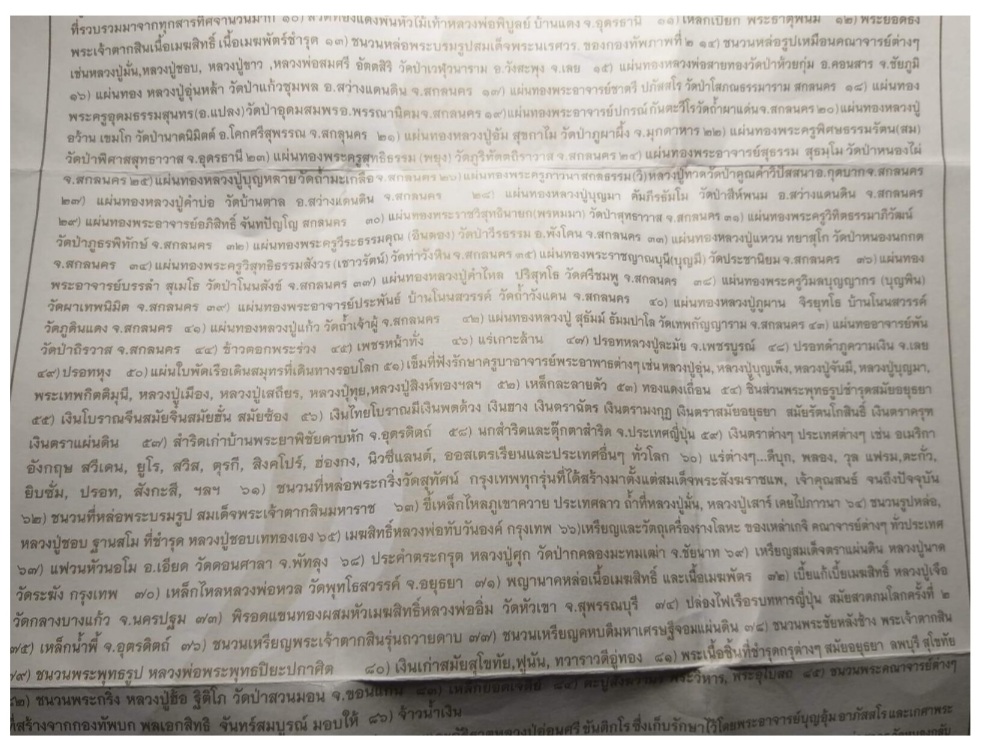 ที่รวบรวมมาจากทุกสารทิศจำนวนมาก ๑๐) ลวดทองแดงพันหัวไม้เท้าหลวงพ่อพิบูลย์ บ้านแดง จ.อุดรธานี ๑๑) เหล็กเปียก พระธาตุพนม ๑๒) พระยอดธง
พระเจ้าตากสินเนื้อเมฆสิทธิ์ เนื้อเมฆพัตร์ชำรุด ๑๓) ชนวนหล่อพระบรมรูปสมเด็จพระนเรศวร. ของกองทัพภาพที่ ๒ ๑๔) ชนวนหล่อรูปเหมือนคณาจารย์ต่างๆ
เช่นหลวงปู่มั่น,หลวงปู่ชอบ, หลวงปู่ขาว ,หลวงพ่อสมศรี อัตตสิริ วัดป่าเวฬุวนาราม อ.วังสะพุง จ.เลย ๑๕) แผ่นทองหลวงพ่อสายทองวัดป่าห้วยกุ่ม อ.คอนสาร จ.ชัยภูมิ
๑๖) แผ่นทอง หลวงปู่อุ่นหล้า วัดป่าแก้วชุมพล อ.สว่างแดนดิน จ.สกลนคร ๑๗) แผ่นทองพระอาจารย์ชาตรี ปภัสสโร วัดป่าโสภณธรรมาราม สกลนคร ๑๘) แผ่นทอง
พระครูอุดมธรรมสุนทร(อ.แปลง)วัดป่าอุดมสมพร อ.พรรณานิคม จ.สกลนคร ๑๙)แผ่นทองพระอาจารย์ปกรณ์ กันตวีโรวัดถ้ำผาแด่น จ.สกลนคร ๒๐)แผ่นทองหลวงปู่
อว้าน เขมโก วัดป่านาคนิมิตต์ อ.โคกศรีสุพรรณ จ.สกลนคร ๒๑) แผ่นทองหลวงปู่อัม สุขกาโม วัดป่าภูผาผึ้ง จ.มุกดาหาร ๒๒) แผ่นทองพระครูพิศษธรรมรัตน(สม)
วัดป่าพิศาสสุทธาวาส จ.อุดรธานี ๒๓) แผ่นทองพระครูสุทธิธรรม (พยุง) วัดภูริทัตตถิราวาส จ.สกลนคร ๒๔) แผ่นทองพระอาจารย์สุธรรม สุธมฺโม วัดป่าหนองไผ่
จ.สกลนคร ๒๕) แผ่นทองหลวงปู่บุญหลายวัดถ้ำมะเกลือ จ.สกลนคร ๒๖) แผ่นทองพระครูภาวนาสกลธรรม(วิ)หลวงปู่ทวดวัดป่าคูณคำวิปัสสนา อ.กุดบาก จ.สกลนคร
๒๗) แผ่นทองหลวงปู่คำบ่อ วัดบ้านตาล อ.สว่างแดนดิน จ.สกลนคร ๒๘) แผ่นทองหลวงปู่บุญมา คัมภีรธัมโม วัดป่าสีห์พนม อ.สว่างแดนดิน จ.สกลนคร
๒๙) แผ่นทองพระอาจารย์อภิสิทธิ์ จันทปัญโญ สกลนคร ๓๐) แผ่นทองพระราชวิสุทธินายก(พรหมมา) วัดป่าสุทธาวาส จ.สกลนคร ๓๑) แผ่นทองพระครูวิทิตธรรมาภิวัฒน์
วัดป่าภูธรพิทักษ์ จ.สกลนคร ๓๒) แผ่นทองพระครูวีระธรรมคุณ (อินตอง) วัดป่าวีรธรรม อ.พังโคน จ.สกลนคร ๓๓) แผ่นทองหลวงปู่แหวน ทยาสุโก วัดป่าหนองนกกด
จ.สกลนคร ๓๔) แผ่นทองพระครูวิสุทธิธรรมสังวร (เชาวรัตน์) วัดท่าวังหิน จ.สกลนคร ๓๕) แผ่นทองพระราชญาณบุนี(บุญมี) วัดประชานิยม จ.สกลนคร ๓๖) แผ่นทอง
พระอาจารย์บรรลำ สุเมโธ วัดป่าโนนสังข์ จ.สกลนคร ๓๗) แผ่นทองหลวงปู่คำไหล ปริสุทโธ วัดศรีชมพู จ.สกลนคร ๓๘) แผ่นทองพระครูวิมลบุญญากร (บุญพิน)
วัดผาเทพนิมิต จ.สกลนคร ๓๙) แผ่นทองพระอาจารย์ประพันธ์ บ้านโนนสวรรค์ วัดถ้ำวังแคน จ.สกลนคร ๔๐) แผ่นทองหลวงปู่ภูผาน จิรยุทโธ บ้านโนนสวรรค์
วัดภูดินแดง จ.สกลนคร ๔๑) แผ่นทองหลวงปู่แก้ว วัดถ้ำเจ้าผู้ จ.สกลนคร ๔๒) แผ่นทองหลวงปู่ สุธัมม์ ธัมมปาโล วัดเทพกัญญาราม จ.สกลนคร ๔๓) แผ่นทออาจารย์พัน
วัดป่าถิรวาส จ.สกลนคร ๔๔) ข้าวตอกพระร่วง ๔๕) เพชรหน้าทั่ง ๔๖) แร่เกาะล้าน ๔๗) ปรอทหลวงปู่ละมัย จ.เพชรบูรณ์ ๔๘) ปรอทดำภูความเงิน จ.เลย
๔๙)ปรอทหุง ๕๐) แผ่นใบพัดเรือเดินสมุทรที่เดินทางรอบโลก ๕๑) เข็มที่ฝังรักษาครูบาอาจารย์พระอาพารต่างๆเช่น หลวงปู่อุ่น, หลวงปู่บุญเพ็ง, หลวงปู่จันมี, หลวงปู่บุญมา,
พระเทพกิตติมุนี, หลวงปู่เมือง, หลวงปู่เสถียร, หลวงปู่ทุย,หลวงปู่สิงห์ทองฯลฯ ๕๒) เหล็กละลายตัว ๕๓) ทองแดงเถื่อน ๕๔) ชิ้นส่วนพระพุทธรูปชำรุดสมัยอยุธยา
๕๕) เงินโบราณจีนสมัยจีนสมัยฮั่น สมัยซ้อง ๕๖) เงินไทยโบราณมีเงินพดด้วง เงินฮาง เงินตราฉัตร เงินตรามงกุฎ เงินตราสมัยอยุธยา สมัยรัตนโกสินธิ์ เงินตราครุฑ
เงินตราแผ่นดิน ๕๗) สำริดเก่าบ้านพระยาพิชัยดาบหัก จ.อุตรดิตถ์ ๕๘) นกสำริดและตุ๊กตาสำริด จ.ประเทศญี่ปุ่น ๕๙) เงินตราต่างๆ ประเทศต่างๆ เช่น อเมริกา
อังกฤษ สวีเดน, ยูโร, สวิส, ตุรกี, สิงคโปร์, ฮ่องกง, นิวซีแลนด์, ออสเตรเรียนและประเทศอื่นๆ ทั่วโลก ๖๐) แร่ต่างๆ...ดีบุก, พลอง, วุล แฟรม,ตะกั่ว,
ยิบซั่ม, ปรอท, สังกะสี, ฯลฯ ๖๑) ชนวนที่หล่อพระกริ่งวัดสุทัศน์ กรุงเทพทุกรุ่นที่ได้สร้างมาตั้งแต่สมเด็จพระสังฆราชแพ, เจ้าคุณสนธ์ จนถึงปัจจุบัน
๖๒) ชนวนที่หล่อพระบรมรูป สมเด็จพระเจ้าตากสินมหาราช ๖๓) ขี้เหล็กไหลภูเขาควาย ประเทศลาว ถ้ำที่หลวงปู่มั่น, หลวงปู่เสาร์ เคยไปภาวนา ๖๔) ชนวนรูปหล่อ,
หลวงปู่ชอบ ฐานสโม ที่ชำรุด หลวงปู่ชอบเททองเอง ๖๕) เมฆสิทธิ์หลวงพ่อทับวันองค์ กรุงเทพ ๖๖)เหรียญและวัตถุเครื่องร่างโลหะ ของเหล่าเกจิ คณาจารย์ต่างๆ ทั่วประเทศ
๖๗) แฟวนหัวนอโม อ.เอียด วัดดอนศาลา จ.พัทลุง ๖๘) ประคำตระกรุต หลวงปู่ศุก วัดปากคลองมะทมเฒ่า จ.ชัยนาท ๖๙) เหรียญสมเด็จตราแผ่นดิน หลวงปู่นาค
วัดระฆัง กรุงเทพ ๗๐) เหล็กไหลหลวงพ่อหวล วัดพุทโธสวรรค์ จ.อยุธยา ๗๑) พญานาคหล่อเนื้อเมฆสิทธิ์ และเนื้อเมฆพัตร ๗๒) เบี้ยแก้เบี้ยเมฆสิทธิ์ หลวงปู่เจือ
วัดกลางบางแก้ว จ.นครปฐม ๗๓) พิรอดแขนทองผสมหัวเมฆสิทธิ์หลวงพ่ออิ่ม วัดหัวเขา จ.สุพรรณบุรี ๗๔) ปล่องไฟเรือรบทหารญี่ปุ่น สมัยสวดกมโลกครั้งที่ ๒
๗๕) เหล็กน้ำพี้ จ.อุตรดิตถ์ ๗๖) ชนวนเหรียญพระเจ้าตากสินรุ่นถวายดาบ ๗๗) ชนวนเหรียญคหบดีมหาเศรษฐีจอมแผ่นดิน ๗๘) ชนวนพระชัยหลังช้าง พระเจ้าตากสิน
๗๙) ชนวนพระพุทธรูป หลวงพ่อพระพุทธปิยะปกาศิต ๘๐) เงินเก่าสมัยสุโขทัย,ฟูนัน, ทวาราวดีอู่ทอง ๘๑) พระเนื้อชินที่ชำรุดกรุต่างๆ สมัยอยุธยา ลพบุรี สุโขทัย
๘๒) ชนวนพระกริ่ง หลวงปู่ฮ้อ ฐิติโภ วัดป่าสวนมอน จ.ขอนแก่น ๘๓) เหล็กยอดเจดีย์ ๘๔) ตะปูสังฆวานร พระวิหาร, พระอุโบสถ ๘๕) ชนวนพระคณาจารย์ต่างๆ
ที่สร้างจากกองทัพบก พลเอกสิทธิ จันทร์สมบูรณ์ มอบให้ ๘๖) จ้าวน้ำเงิน
หลวงปู่อ่อนศรี ขันติภโร ซึ่งเก็บรักษาไว้โดยพระอาจารย์บุญอุ้ม อาภัสสโร และเกศาพระ